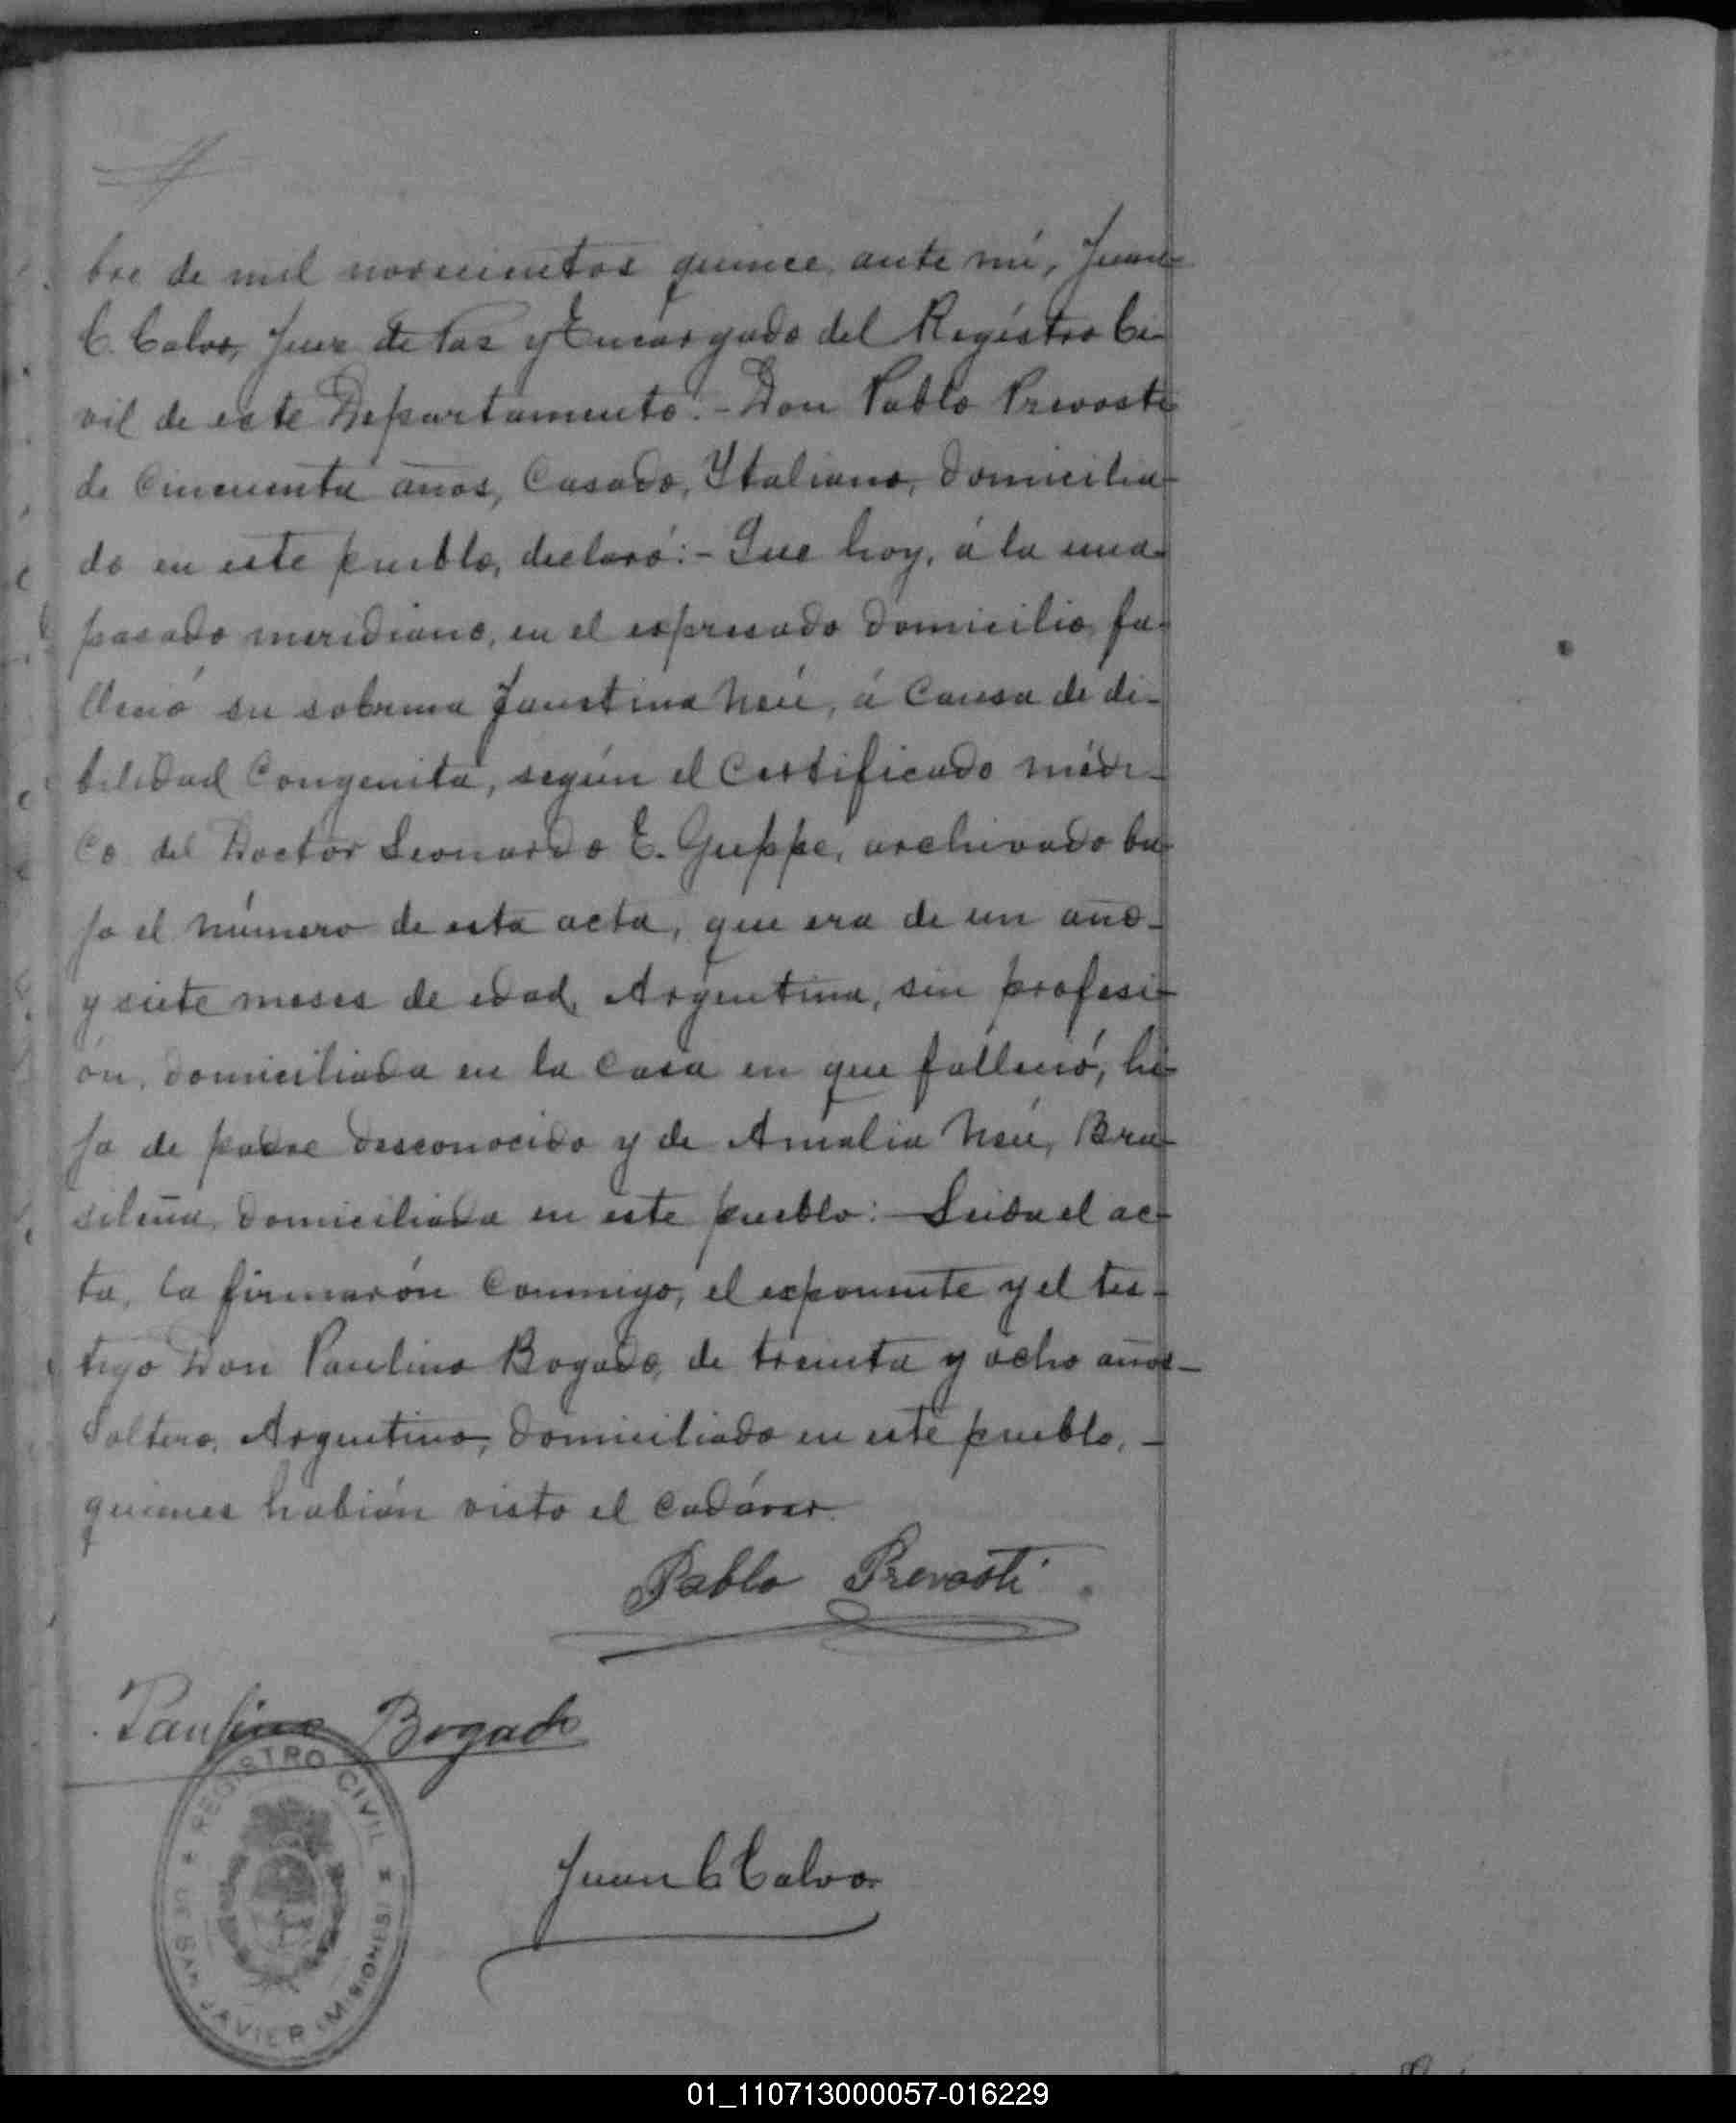 bre de mil novecientos quince, ante mí, Juan
C. Calvo, Juez de Paz y Encargado del Registro Ci-
vil de este Departamento.- Don Pablo Prevosti
de cincuenta años, Casado, Italiano, domicilia-
do en este pueblo, declaró:- Que hoy, á la una
pasado meridiano, en el expresado domicilio, fa-
lleció su sobrina Faustina Neú, á Causa de de-
bilidad Congenita, según el Certificado médi-
co del Doctor Leonardo E. Guppe, archivado ba-
jo el número de esta acta, que era de un año-
y siete meses de edad, Argentina, sin profesi-
ón, domiciliada en la Casa en que falleció, hi-
ja de padre desconocido y de Amalia Neú, Bra-
sileña, domiciliada en este pueblo:- Leida el ac-
ta, la firmarón Conmigo, el exponente y el tes-
tigo Don Paulino Bogado, de treinta y ocho años-
Soltero, Argentino, domiciliado en este pueblo, -
quienes habián visto el Cadáver.
Pablo Prevosti
Paulino Bogado
REGISTRO CIVIL
Juan C Calvo
DE SAN JAVIER (MISIONES)
01_110713000057-016229